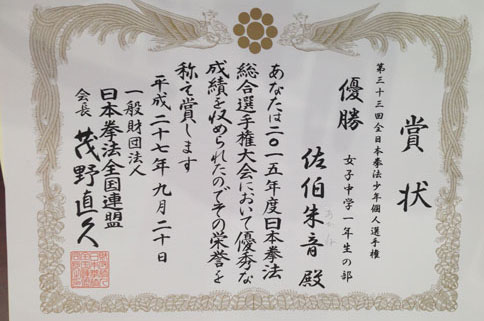 賞状
第三十三回全日本拳法少年個人選手権
女子中学一年生の部
優勝
佐伯朱音殿
あなたは二〇一五年度日本拳法
総合選手権大会において優秀な
成績を収められたのでその栄誉を
称え賞します
平成二十七年九月二十日
一般財団法人
日本拳法全国連盟
会長 茂野直久